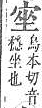 烏本切音
穩坐也